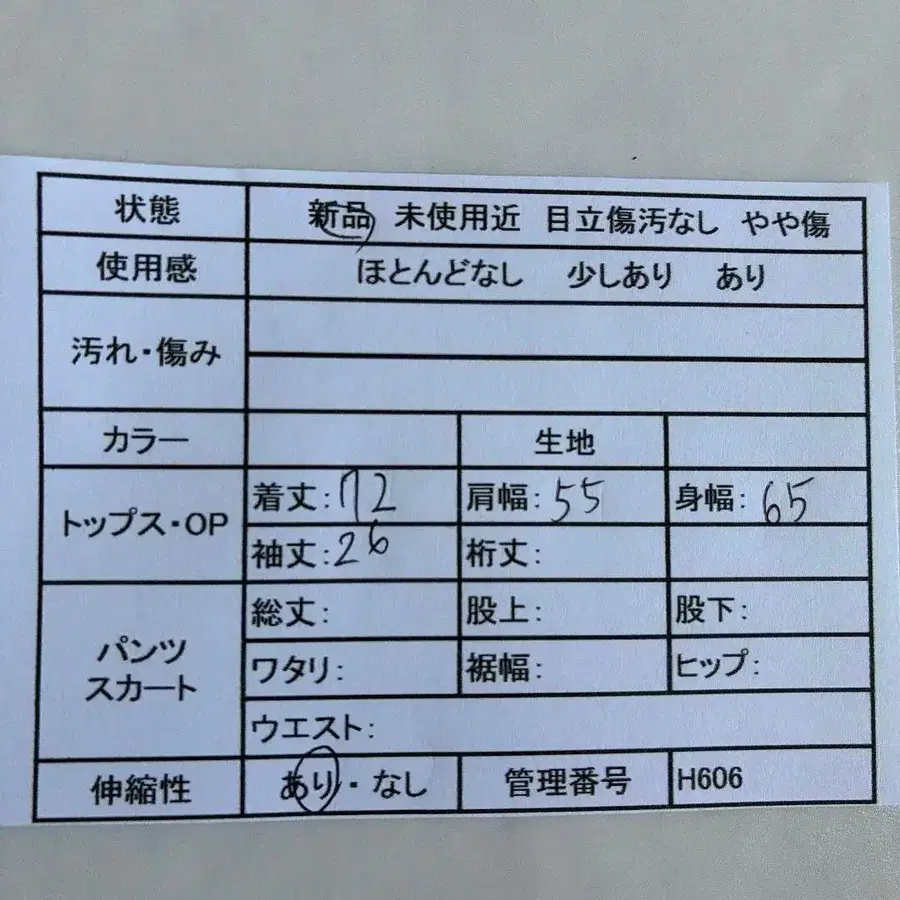 状態 新品 未使用近 目立傷汚なし やや傷
使用感 ほとんどなし 少しあり あり
汚れ・傷み
カラー 生地
トップス・OP
着丈:72 肩幅:55 身幅:65
袖丈:26 裄丈:
パンツ
スカート
総丈: 股上: 股下:
ワタリ: 裾幅: ヒップ:
ウエスト:
伸縮性 あり・なし 管理番号 H606